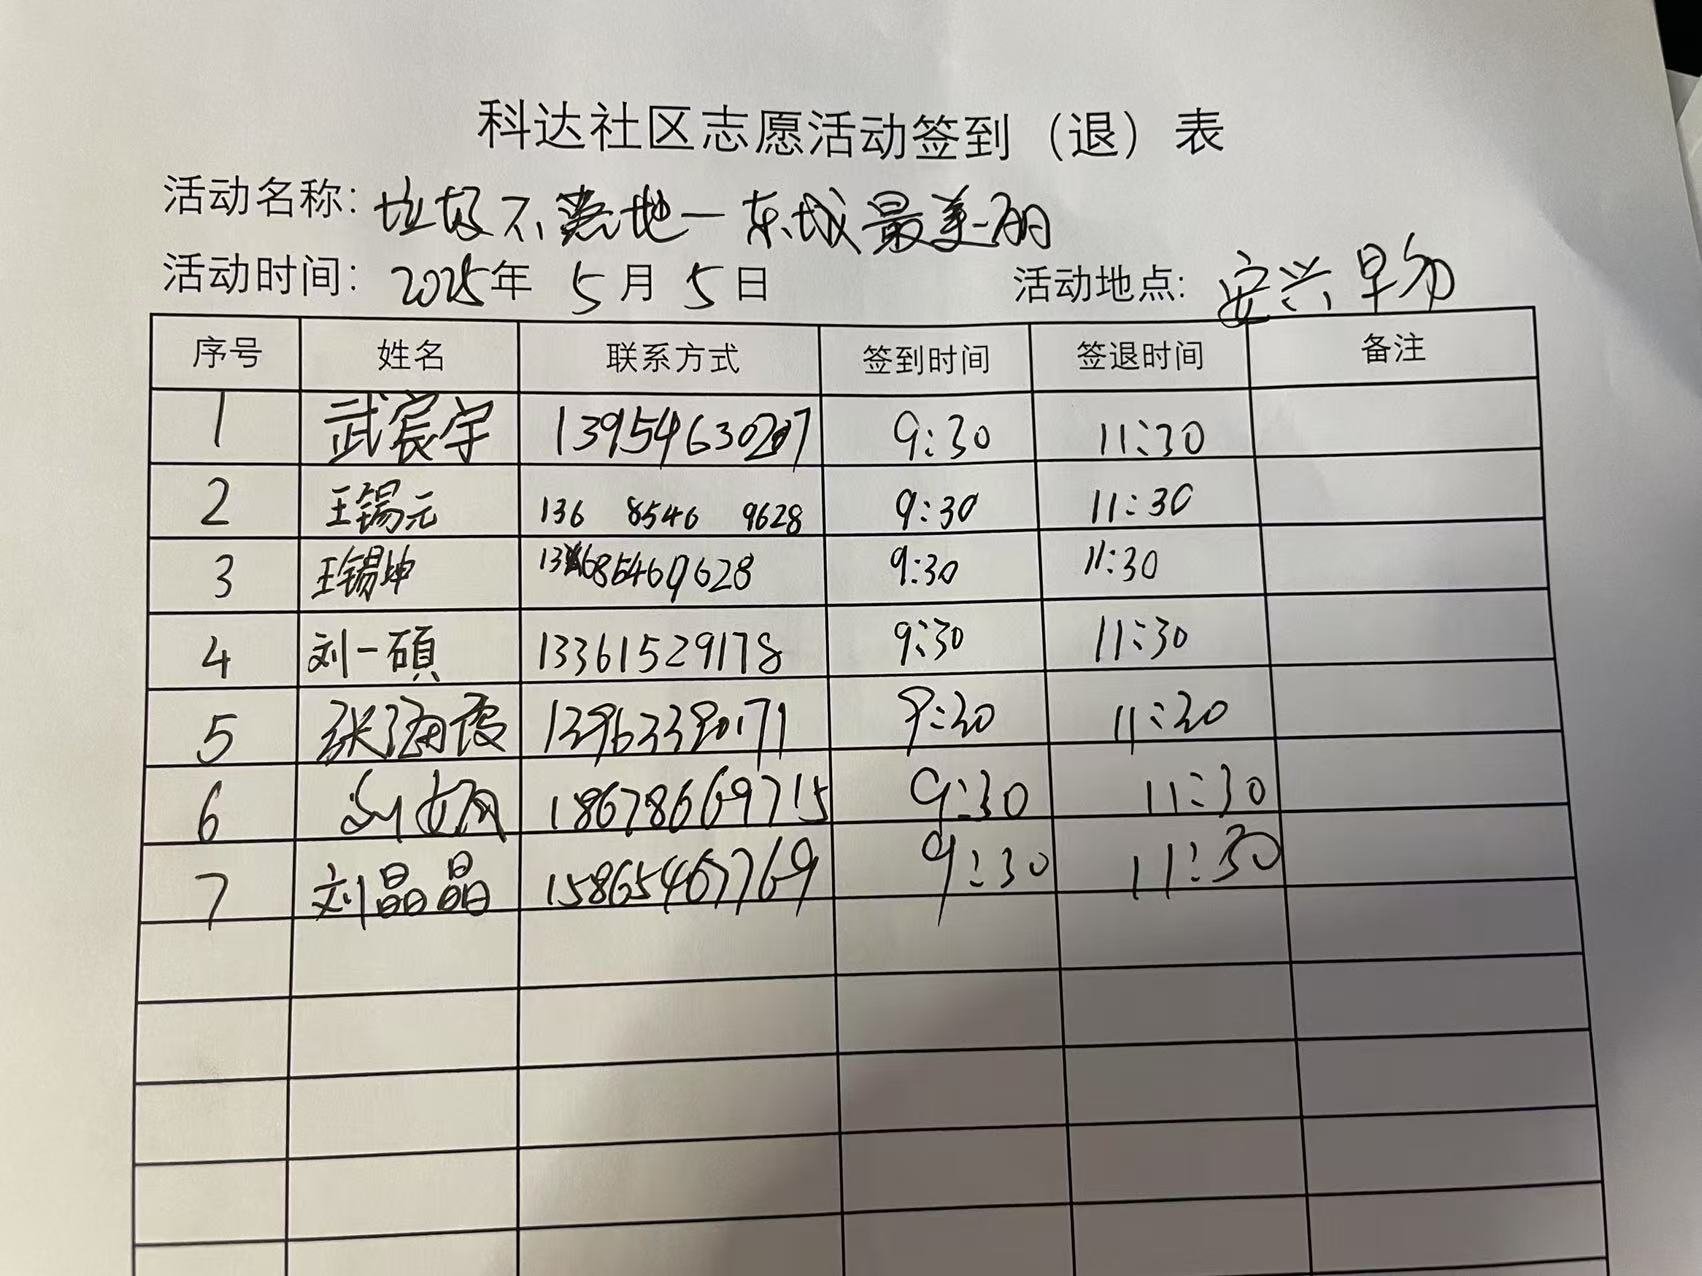 科达社区志愿活动签到（退）表
活动名称: 垃圾不落地一东城最美丽
活动时间: 2025年 5月 5日 活动地点: 安兴早市
序号 姓名 联系方式 签到时间 签退时间 备注
1 武宸宇 13954630207 9:30 11:30
2 王锡元 136 8546 9628 9:30 11:30
3 王锡坤 13685469628 9:30 11:30
4 刘一碩 13361529178 9:30 11:30
5 张海霞 13963380171 9:30 11:30
6 刘 18678669715 9:30 11:30
7 刘晶晶 15865467769 9:30 11:30